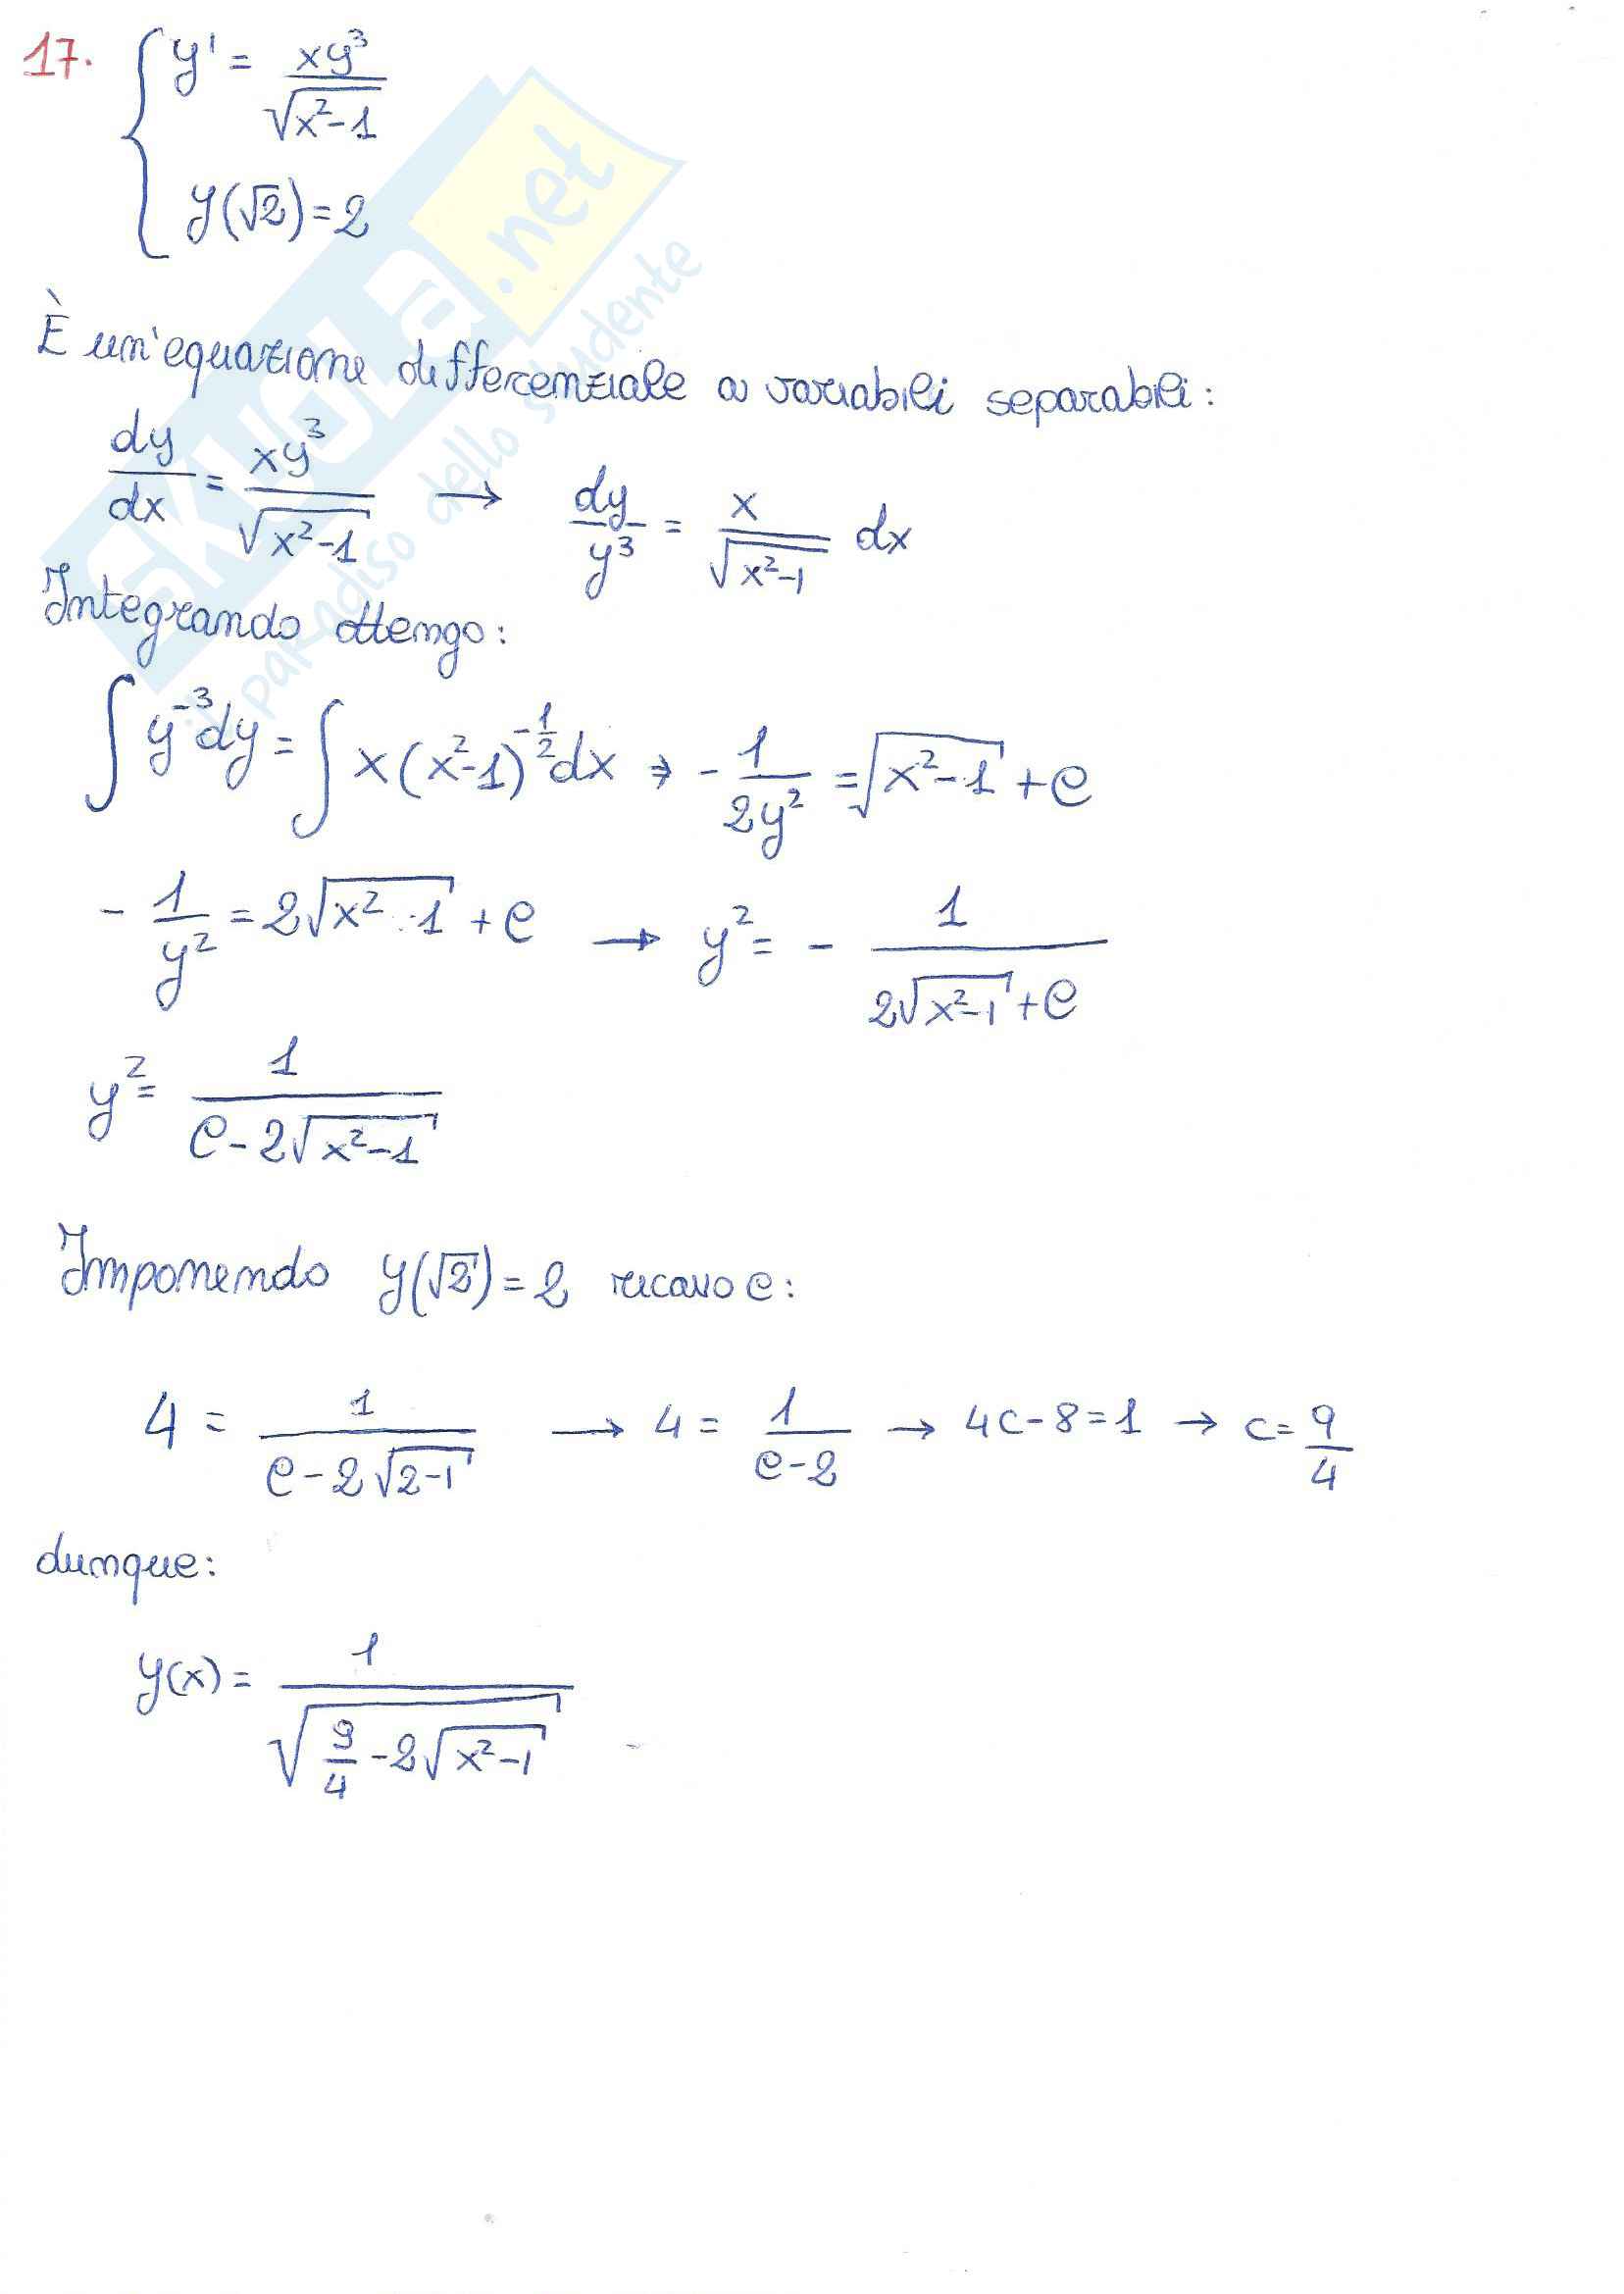 17. { y' = xy³/√(x²-1)
y(√2) = 2
È un'equazione differenziale a variabili separabili:
dy/dx = xy³/√(x²-1) → dy/y³ = x/√(x²-1) dx
Integrando ottengo:
∫ y⁻³dy = ∫ x(x²-1)^(-1/2) dx ⇒ -1/(2y²) = √(x²-1) + c
-1/y² = 2√(x²-1) + c → y² = -1/(2√(x²-1) + c)
y² = 1/(c-2√(x²-1))
Imponendo y(√2) = 2 ricavo c:
4 = 1/(c-2√(2-1)) → 4 = 1/(c-2) → 4c-8=1 → c = 9/4
dunque:
y(x) = 1/√(9/4 - 2√(x²-1))
SKUOLA.net
il paradiso dello studente